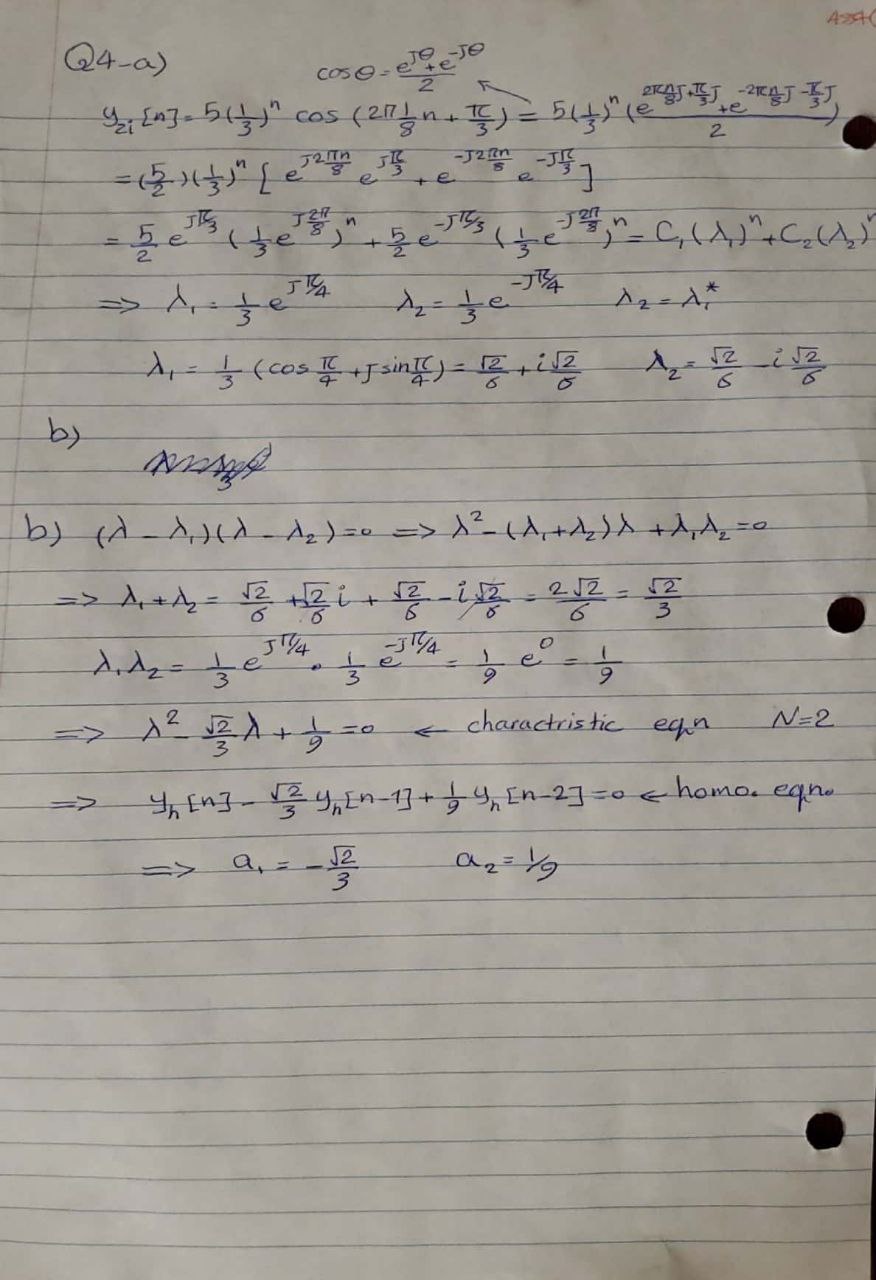 Q4-a)
cosθ = (e^{Jθ} + e^{-Jθ})/2
y_{zi}[n] = 5(1/3)^n cos(2π 1/8 n + π/3) = 5(1/3)^n (e^{2πn/8 J + π/3 J} + e^{-2πn/8 J - π/3 J})/2
= (5/2)(1/3)^n [e^{J2πn/8} e^{Jπ/3} + e^{-J2πn/8} e^{-Jπ/3}]
= 5/2 e^{Jπ/3} (1/3 e^{J2π/8})^n + 5/2 e^{-Jπ/3} (1/3 e^{-J2π/8})^n = C₁(λ₁)^n + C₂(λ₂)^n
=> λ₁ = 1/3 e^{Jπ/4} λ₂ = 1/3 e^{-Jπ/4} λ₂ = λ₁*
λ₁ = 1/3 (cos π/4 + J sin π/4) = √2/6 + i√2/6 λ₂ = √2/6 - i√2/6
b)
b) (λ - λ₁)(λ - λ₂) = 0 => λ² - (λ₁+λ₂)λ + λ₁λ₂ = 0
=> λ₁ + λ₂ = √2/6 + √2/6 i + √2/6 - i√2/6 = 2√2/6 = √2/3
λ₁λ₂ = 1/3 e^{Jπ/4} · 1/3 e^{-Jπ/4} = 1/9 e^0 = 1/9
=> λ² - √2/3 λ + 1/9 = 0 ← charactristic eqn N=2
=> y_h[n] - √2/3 y_h[n-1] + 1/9 y_h[n-2] = 0 ← homo. eqn.
=> a₁ = -√2/3 a₂ = 1/9